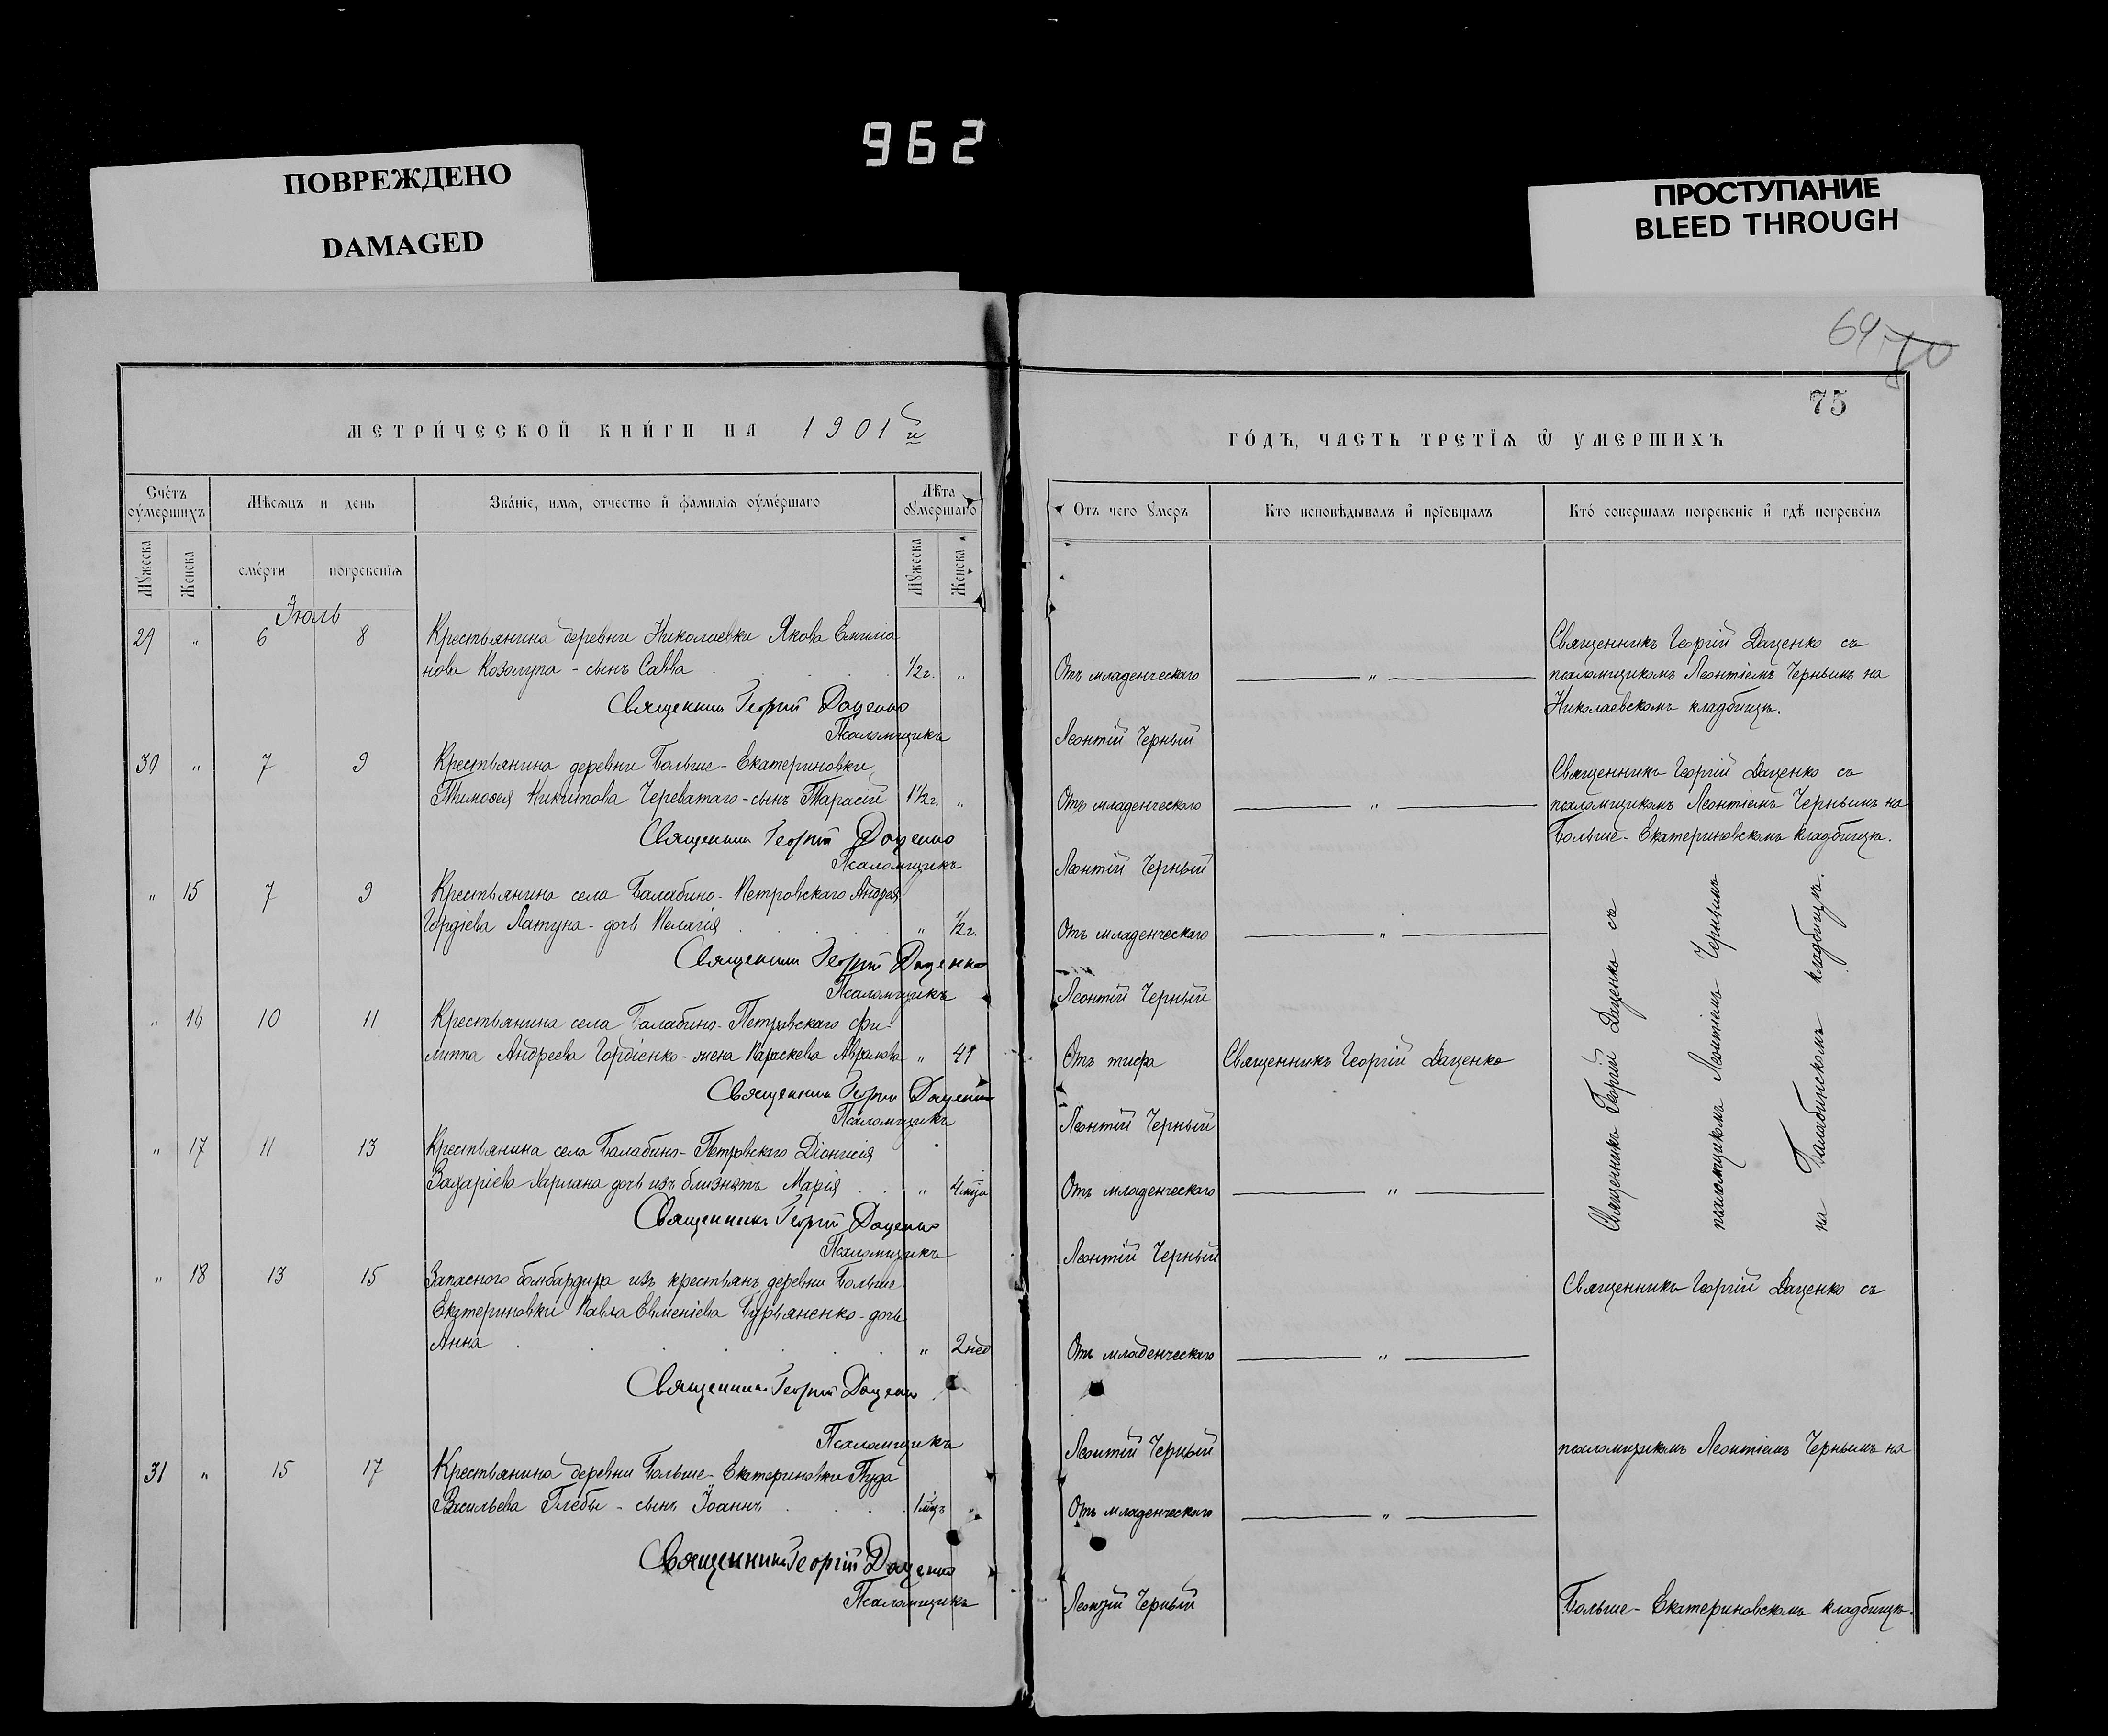 962
ПОВРЕЖДЕНО
DAMAGED
ПРОСТУПАНИЕ
BLEED THROUGH
69 70
75
МЕТРИ́ЧЕСКОЙ КНИ́ГИ НА 1901й
ГО́ДЪ, ЧАСТЬ ТРЕТІѦ Ѿ УМЕРШИХЪ
Сче́тъ оу҆ме́ршихъ
Мѣсѧцъ и день
Зва́ніе, имѧ, отчество и҆ фамиліѧ оу҆ме́ршаго
Лѣта Ꙋмершаго
Отъ чего Ꙋмеръ
Кто исповѣдывалъ и҆ прїобщалъ
Кто́ совершалъ погребеніе и҆ гдѣ погребе́нъ
Мꙋжеска
Женска
сме́рти
погребеніѧ
Мꙋжеска
Женска
Іюль
29 " 6 8 Крестьянина деревни Николаевки Якова Емилiа
нова Козолупа - сынъ Савва 1/2 г. "
Отъ младенческаго "
Священникъ Георгій Даценко съ
псаломщикомъ Леонтіемъ Чернымъ на
Николаевскомъ кладбищѣ.
Священникъ Георгій Даценко
Псаломщикъ Леонтій Черный
30 " 7 9 Крестьянина деревни Больше-Екатериновки,
Тимоѳея Никитова Череватаго - сынъ Тарасій 1 1/2 г. "
Отъ младенческаго "
Священникъ Георгій Даценко съ
псаломщикомъ Леонтіемъ Чернымъ на
Больше-Екатериновскомъ кладбищѣ.
Священникъ Георгій Даценко
Псаломщикъ Леонтій Черный
" 15 7 9 Крестьянина села Балабино-Петровскаго Андрея
Гордіева Латуна - дочь Пелагія " 1/2 г.
Отъ младенческаго "
Священникъ Георгій Даценко
Псаломщикъ Леонтій Черный
" 16 10 11 Крестьянина села Балабино-Петровскаго Фи-
липпа Андреева Гордіенко - жена Параскева Аврамова " 41
Отъ тифа Священникъ Георгій Даценко
Священникъ Георгій Даценко
Псаломщикъ Леонтій Черный
" 17 11 13 Крестьянина села Балабино-Петровскаго Діонисія
Захаріева Харлана дочь изъ близнятъ Марія " 4 мца
Отъ младенческаго "
Священникъ Георгій Даценко
Псаломщикъ Леонтій Черный
Священникъ Георгій Даценко съ
псаломщикомъ Леонтіемъ Чернымъ
на Балабинскомъ кладбищѣ.
" 18 13 15 Запаснаго бомбардира изъ крестьянъ деревни Больше-
Екатериновки Павла Евменіева Бурьяненко - дочь
Анна " 2 нед
Отъ младенческаго "
Священникъ Георгій Даценко съ
Священникъ Георгій Даценко
Псаломщикъ Леонтій Черный
псаломщикомъ Леонтіемъ Чернымъ на
31 " 15 17 Крестьянина деревни Больше-Екатериновки Пуда
Васильева Глебы - сынъ Іоаннъ 1 мцъ "
Отъ младенческаго "
Священникъ Георгій Даценко
Псаломщикъ Леонтій Черный
Больше-Екатериновскомъ кладбищѣ.